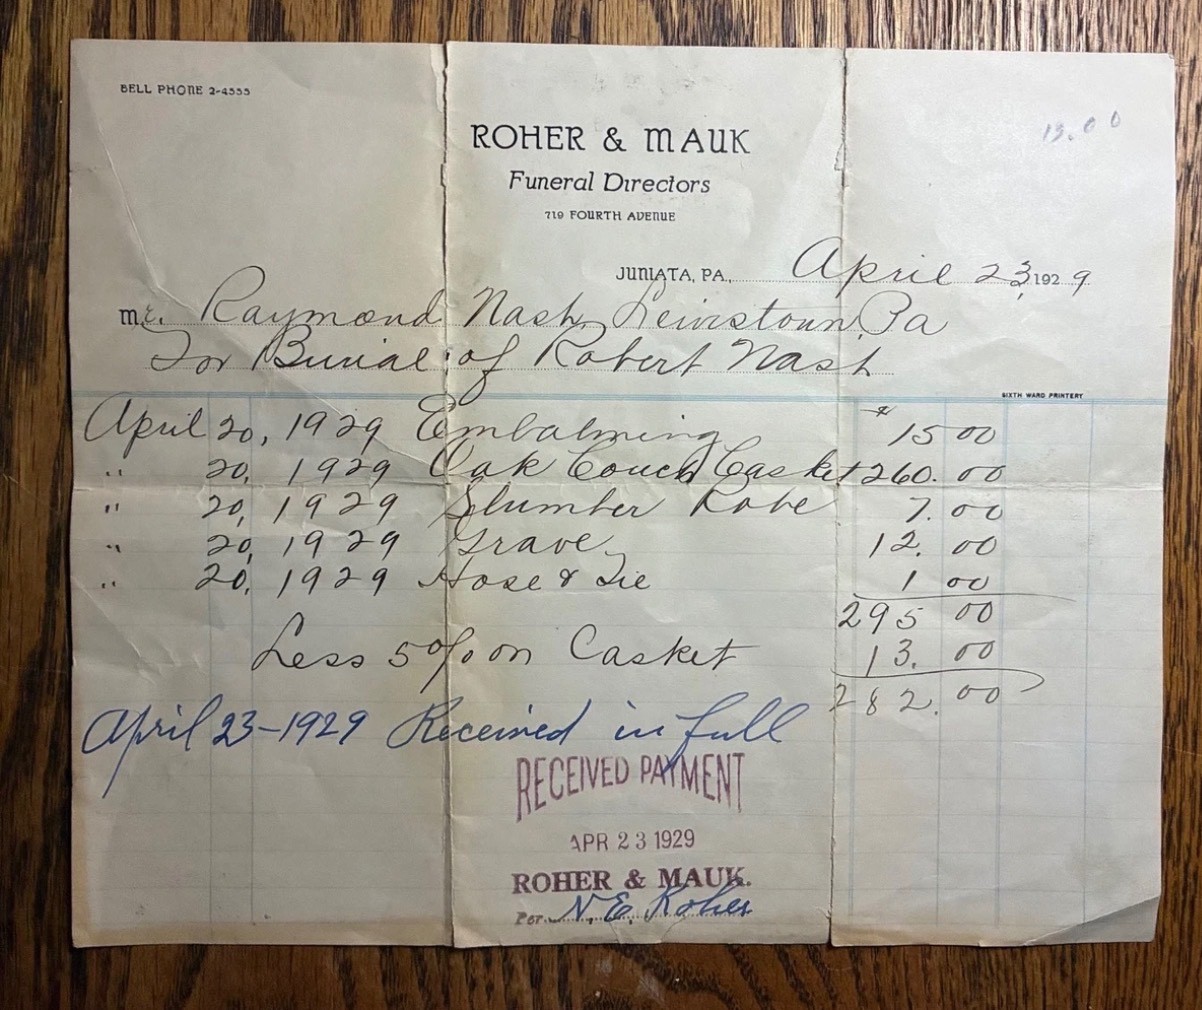 BELL PHONE 2-4555
13.00
ROHER & MAUK
Funeral Directors
719 FOURTH AVENUE
JUNIATA, PA., April 23, 1929
Mr. Raymond Nash, Lewistown, Pa
For Burial of Robert Nash
SIXTH WARD PRINTERY
April 20, 1929 Embalming $15 00
" 20, 1929 Oak Couch Casket 260. 00
" 20, 1929 Slumber Robe 7. 00
" 20, 1929 Grave 12. 00
" 20, 1929 Hose & Tie 1 00
295 00
Less 5% on Casket 13. 00
282. 00
April 23-1929 Received in full
RECEIVED PAYMENT
APR 23 1929
ROHER & MAUK.
Per N. E. Roher